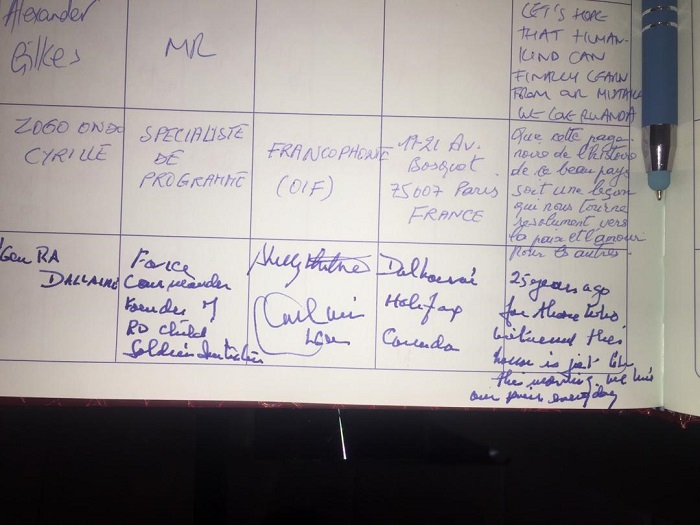 Alexander
Gilkes
MR
LET'S HOPE
THAT HUMAN-
KIND CAN
FINALLY LEARN
FROM OUR MISTAKES
WE LOVE RWANDA
ZOGO ONDO
CYRILLE
SPECIALISTE
DE
PROGRAMME
FRANCOPHONIE
(OIF)
19-21 Av.
Bosquet
75007 Paris
FRANCE
Que cette page
de l'histoire
de ce beau pays
soit une leçon
qui nous tourne
résolument vers
la paix et l'amour
pour les autres.
Gen RA
DALLAIRE
Force
Commander
Founder
RD Child
Soldiers
Dalhousie
Halifax
Canada
25 years ago
for those who
witnessed this
horror is just like
this morning. We live
our every day